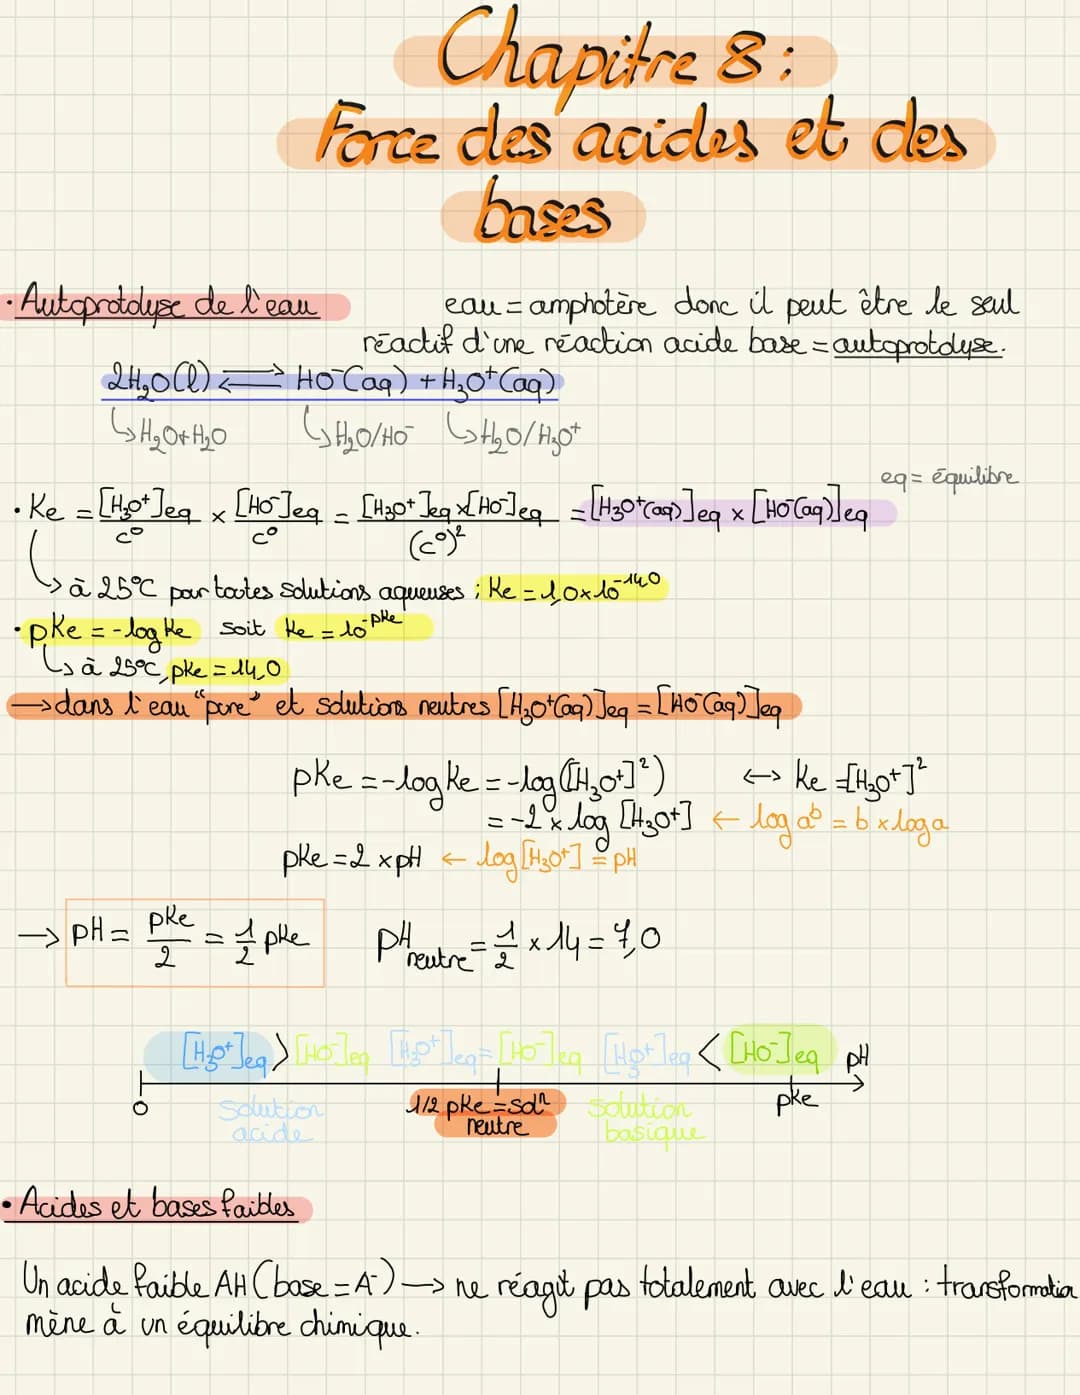 Chapitre 8 :
Force des acides et des
bases
• Autoprotolyse de l'eau
eau = amphotère donc il peut être le seul
réactif d'une réaction acide base = autoprotolyse.
2H₂O(l) ⇌ HO⁻(aq) + H₃O⁺(aq)
↳ H₂O + H₂O ↳ H₂O/HO⁻ ↳ H₂O/H₃O⁺
eq = équilibre
• Ke = [H₃O⁺]eq/c° × [HO⁻]eq/c° = [H₃O⁺]eq × [HO⁻]eq/(c°)² = [H₃O⁺(aq)]eq × [HO⁻(aq)]eq
↳ à 25°C pour toutes solutions aqueuses ; Ke = 1,0 × 10^-14,0
• pKe = -log Ke soit Ke = 10^-pKe
↳ à 25°C, pKe = 14,0
→ dans l'eau "pure" et solutions neutres [H₃O⁺(aq)]eq = [HO⁻(aq)]eq
pKe = -log Ke = -log([H₃O⁺]²) ↔ Ke = [H₃O⁺]²
= -2 × log [H₃O⁺] ← log aᵇ = b × log a
pKe = 2 × pH ← log [H₃O⁺] = pH
→ pH = pKe/2 = 1/2 pKe pH neutre = 1/2 × 14 = 7,0
[H₃O⁺]eq > [HO⁻]eq [H₃O⁺]eq = [HO⁻]eq [H₃O⁺]eq < [HO⁻]eq pH
0 solution 1/2 pKe = solⁿ solution pKe
acide neutre basique
• Acides et bases faibles
Un acide faible AH (base = A⁻) → ne réagit pas totalement avec l'eau : transformation
mène à un équilibre chimique.